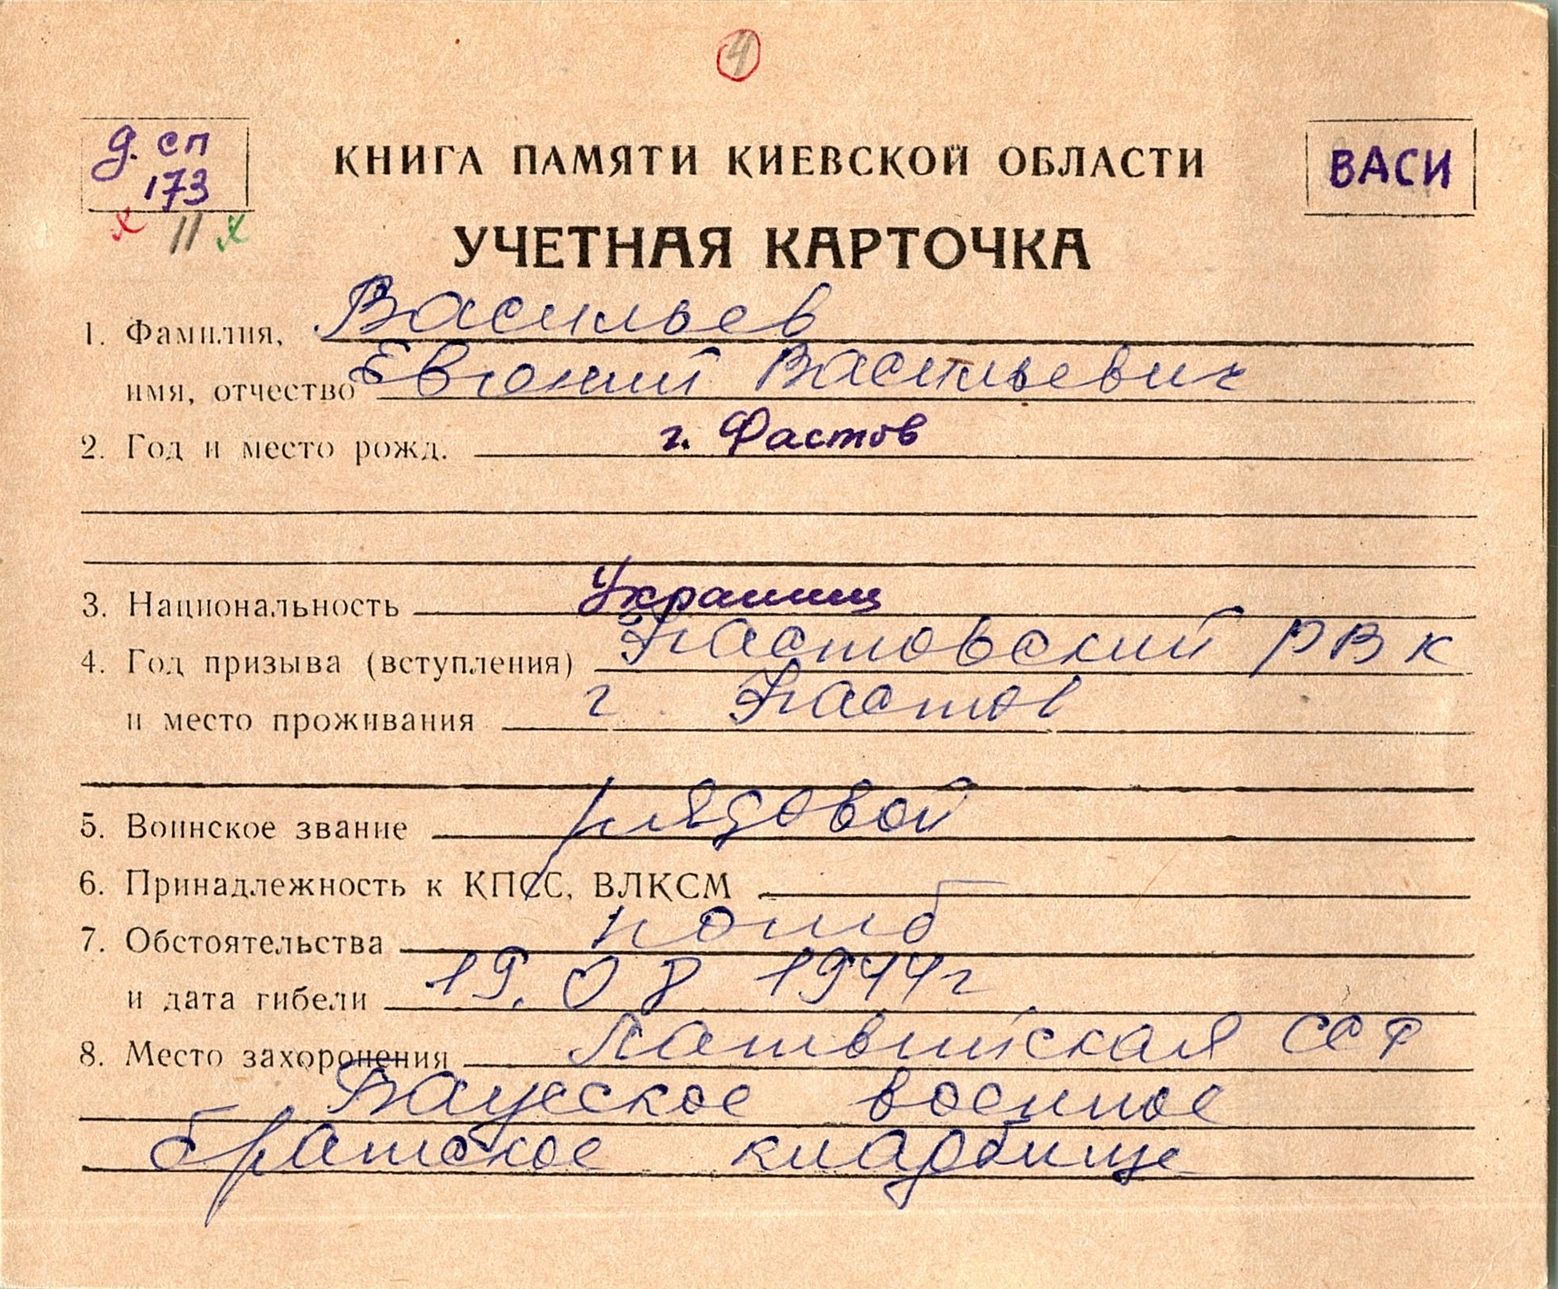 4
д. сп
173
11
КНИГА ПАМЯТИ КИЕВСКОЙ ОБЛАСТИ
ВАСИ
УЧЕТНАЯ КАРТОЧКА
1. Фамилия, Васильев
имя, отчество Евгений Васильевич
2. Год и место рожд. г. Фастов
3. Национальность Украинец
4. Год призыва (вступления) Фастовский РВК
и место проживания г Фастов
5. Воинское звание рядовой
6. Принадлежность к КПСС, ВЛКСМ —
7. Обстоятельства погиб
и дата гибели 19.08 1944г
8. Место захоронения Латвийская ССР
Бауское военное
братское кладбище